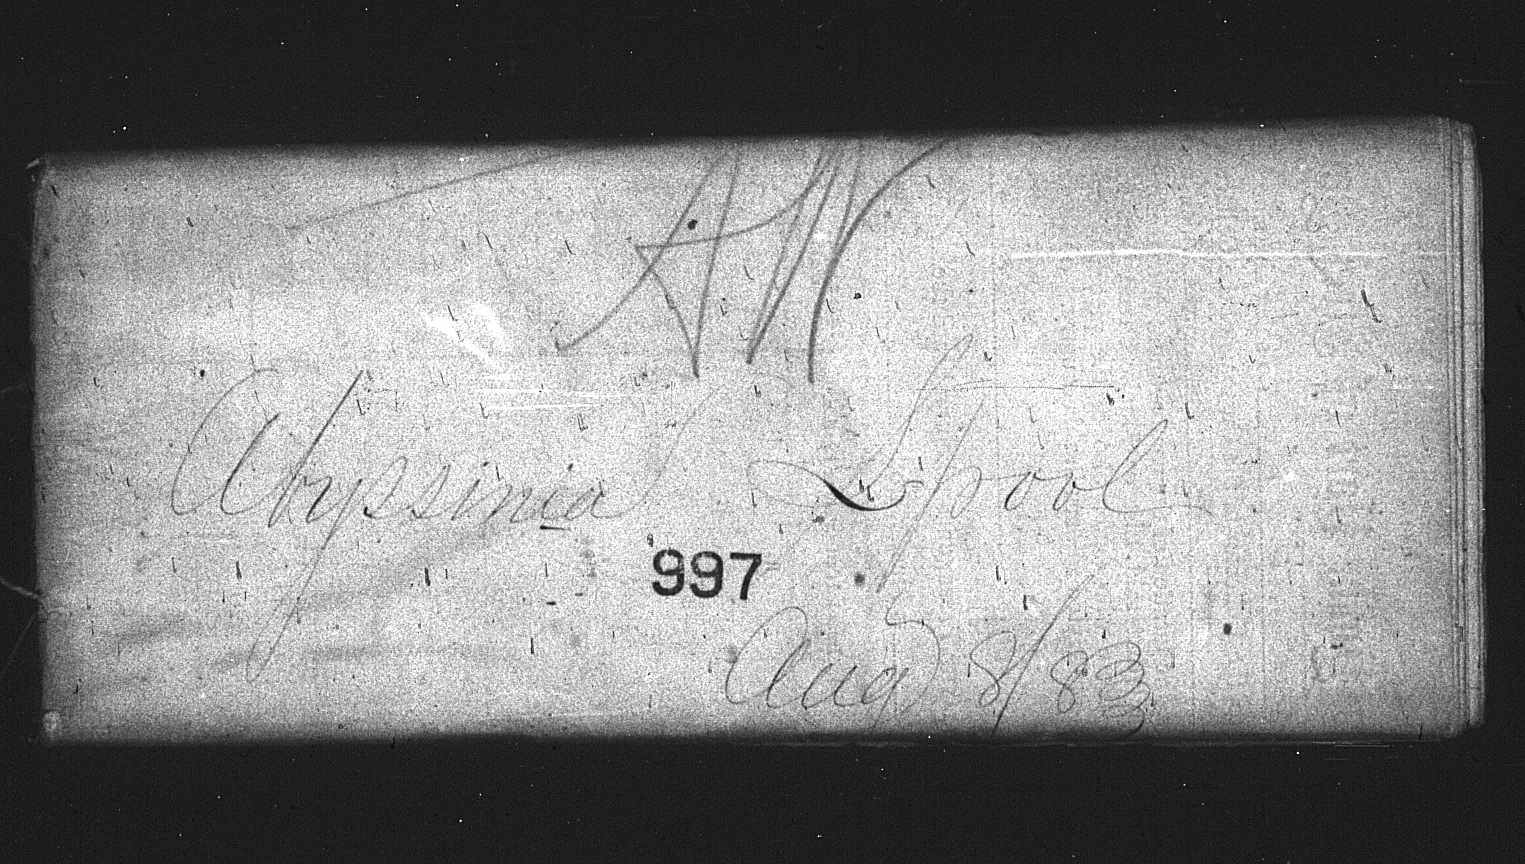 AW
Abyssinia Lpool
997
Aug 8/83